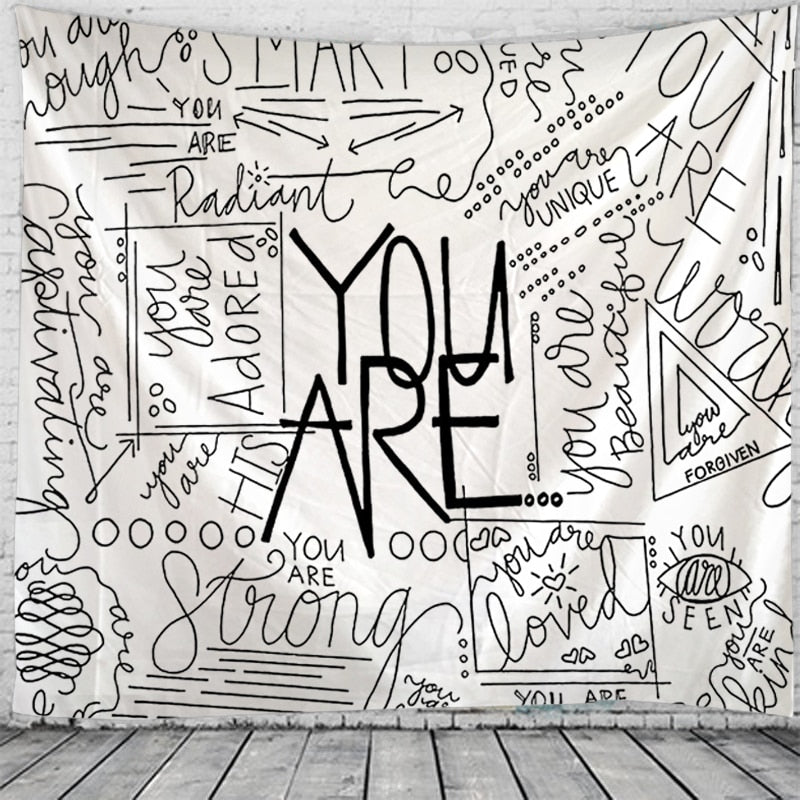 you are
enough
SMART
YOU
ARE
Radiant
you are
UNIQUE
YOU
ARE
Worth
you are
captivating
you
are
ADORED
YOU
ARE...
you are
Beautiful
you
are
FORGIVEN
you
are
HIS
YOU
ARE
Strong
you are
loved
YOU
are
SEEN
are
you
ARE
you
are
YOU ARE